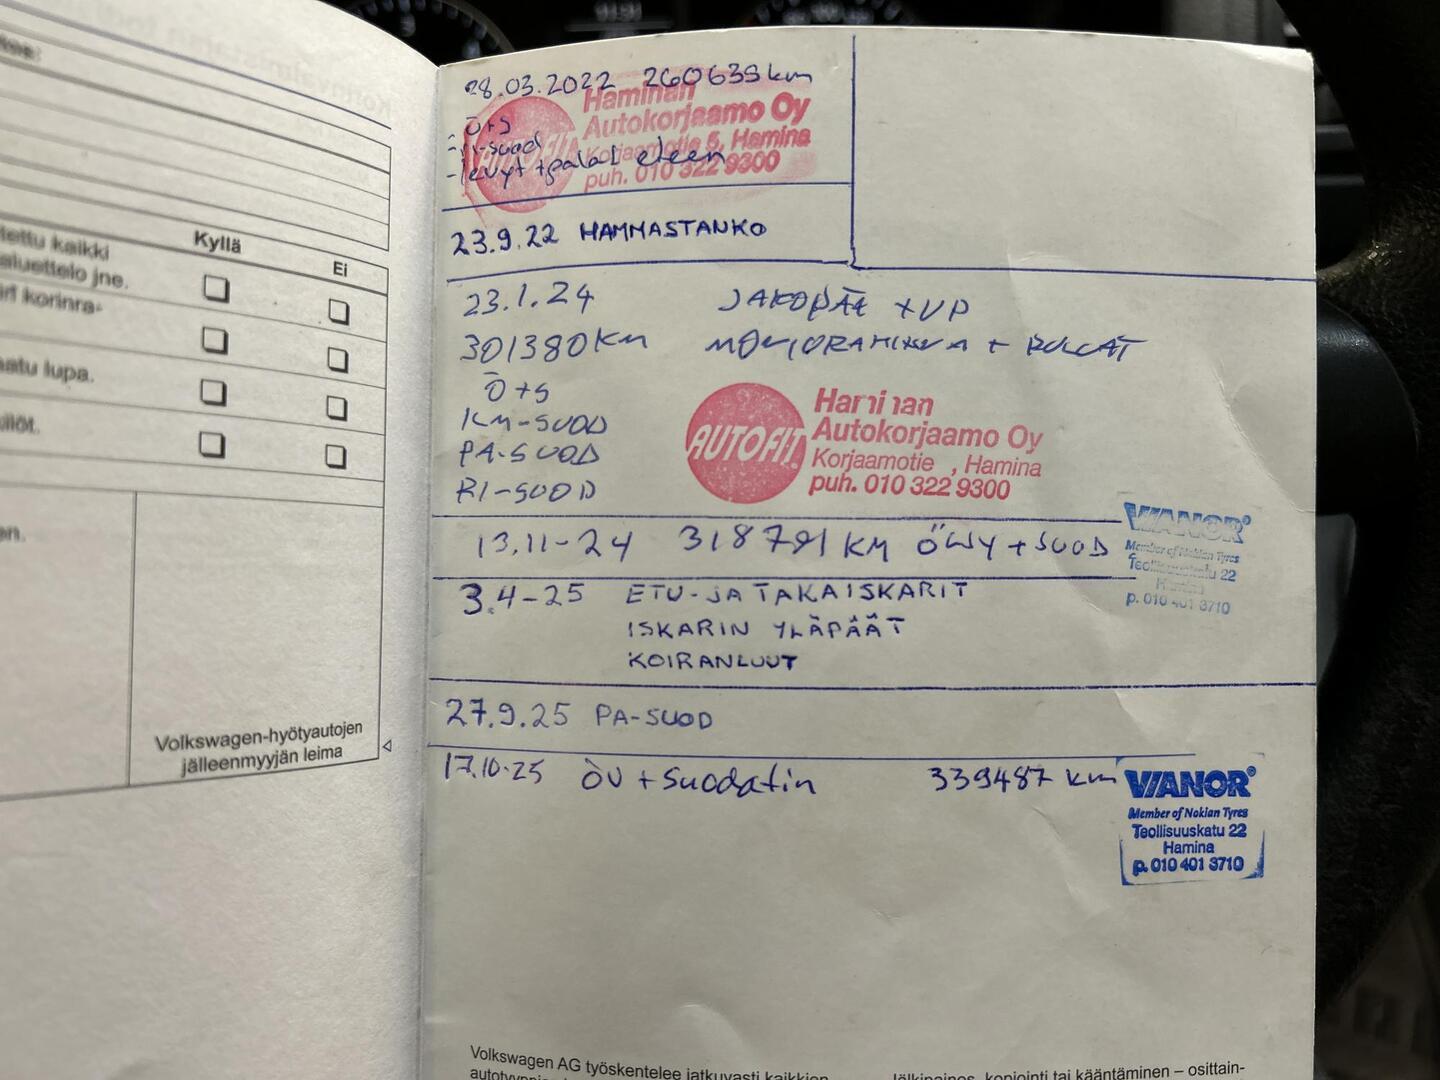 Kyllä
Ei
tettu kaikki
aluettelo jne.
korinra-
aatu lupa.
Volkswagen-hyötyautojen
jälleenmyyjän leima
28.03.2022 260639 km
Haminan
Autokorjaamo Oy
Korjaamotie 5, Hamina
puh. 010 322 9300
AUTOFIT
- Ö+S
-suod
- levyt + palat eteen
23.9.22 HAMMASTANKO
23.1.24 JAKOPÄÄ + VP
301380 KM MONIURAHIHNA + RULLAT
Ö+S
KM-SUOD
PA-SUOD
RI-SUOD
AUTOFIT
Haminan
Autokorjaamo Oy
Korjaamotie , Hamina
puh. 010 322 9300
13.11-24 318791 KM ÖLJY + SUOD
VIANOR®
Member of Nokian Tyres
Teollisuuskatu 22
Hamina
p. 010 401 3710
3.4-25 ETU- JA TAKAISKARIT
ISKARIN YLÄPÄÄT
KOIRANLUUT
27.9.25 PA-SUOD
17.10.25 ÖV + Suodatin 339487 km
VIANOR®
Member of Nokian Tyres
Teollisuuskatu 22
Hamina
p. 010 401 3710
Volkswagen AG työskentelee jatkuvasti kaikkien
Jälkipainos, kopiointi tai kääntäminen – osittain-